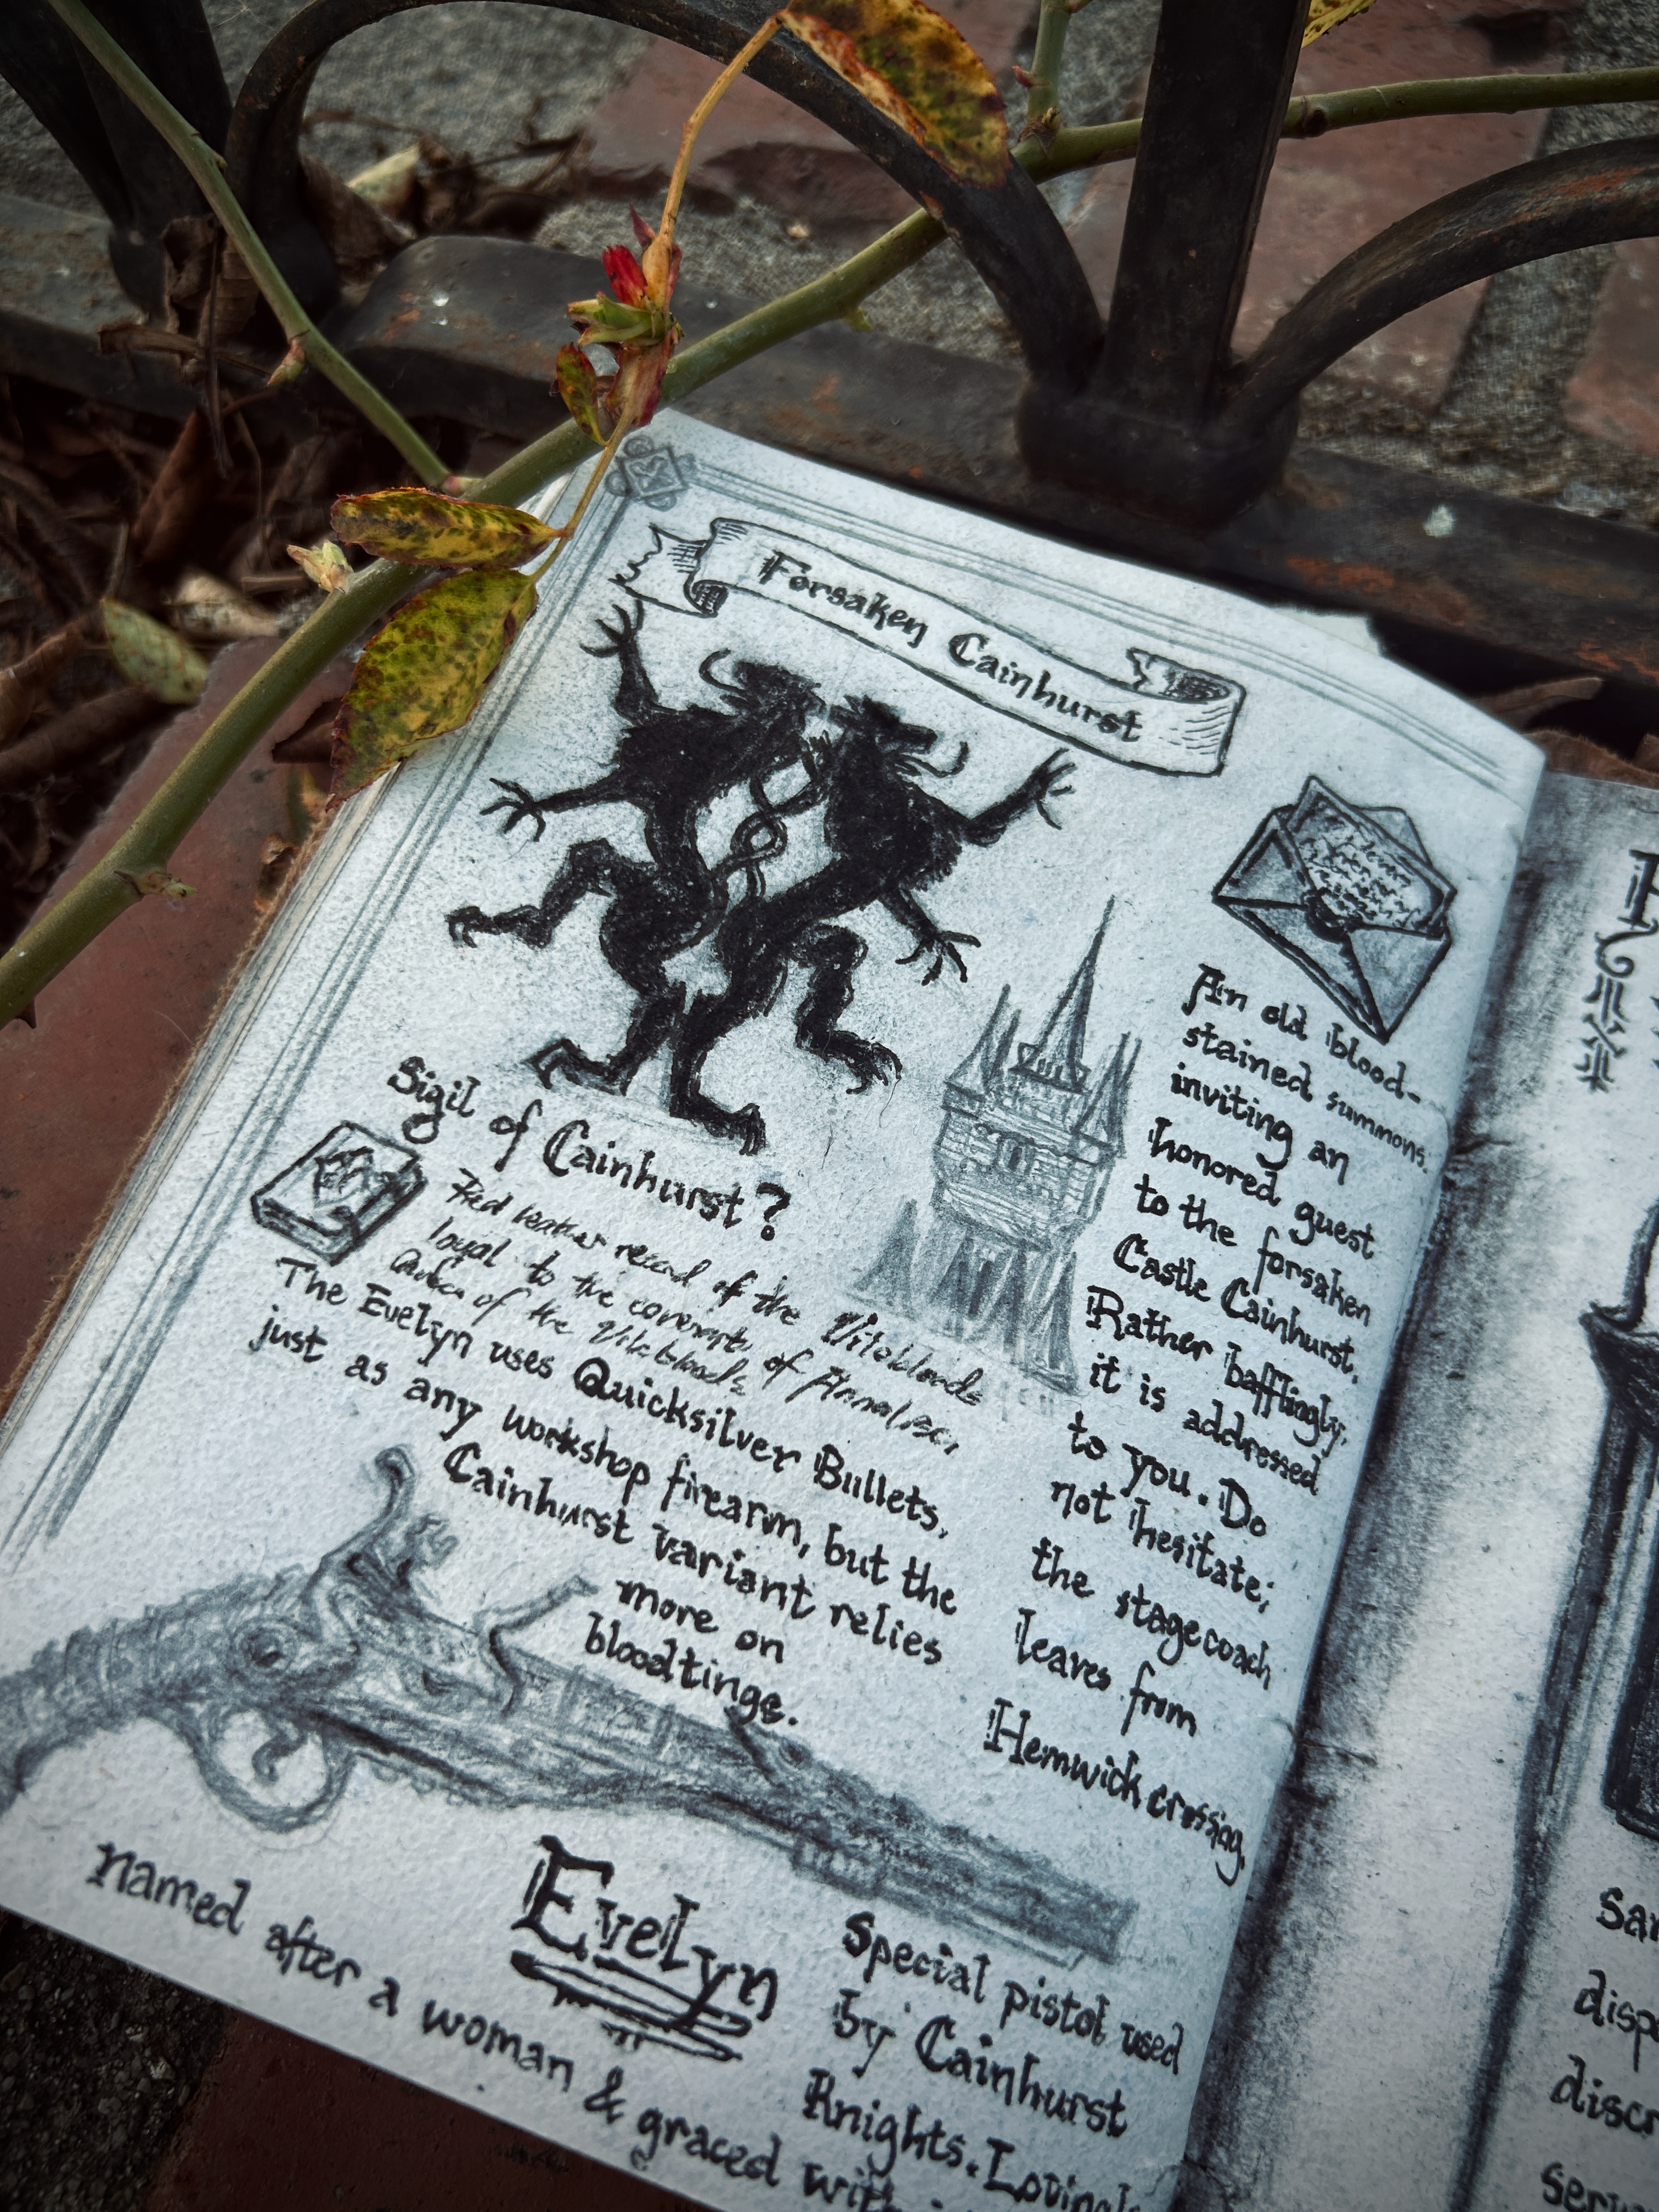 Forsaken Cainhurst
An old blood-
stained summons.
inviting an
honored guest
to the forsaken
Castle Cainhurst.
Rather bafflingly,
it is addressed
to you. Do
not hesitate;
the stagecoach
leaves from
Hemwick crossing.
Sigil of Cainhurst?
Red leather record of the Vilebloods
loyal to the covenant of Annalise,
Queen of the Vilebloods.
The Evelyn uses Quicksilver Bullets,
just as any workshop firearm, but the
Cainhurst variant relies
more on
bloodtinge.
Evelyn
Special pistol used
by Cainhurst
Knights. Lovingly
named after a woman & graced with